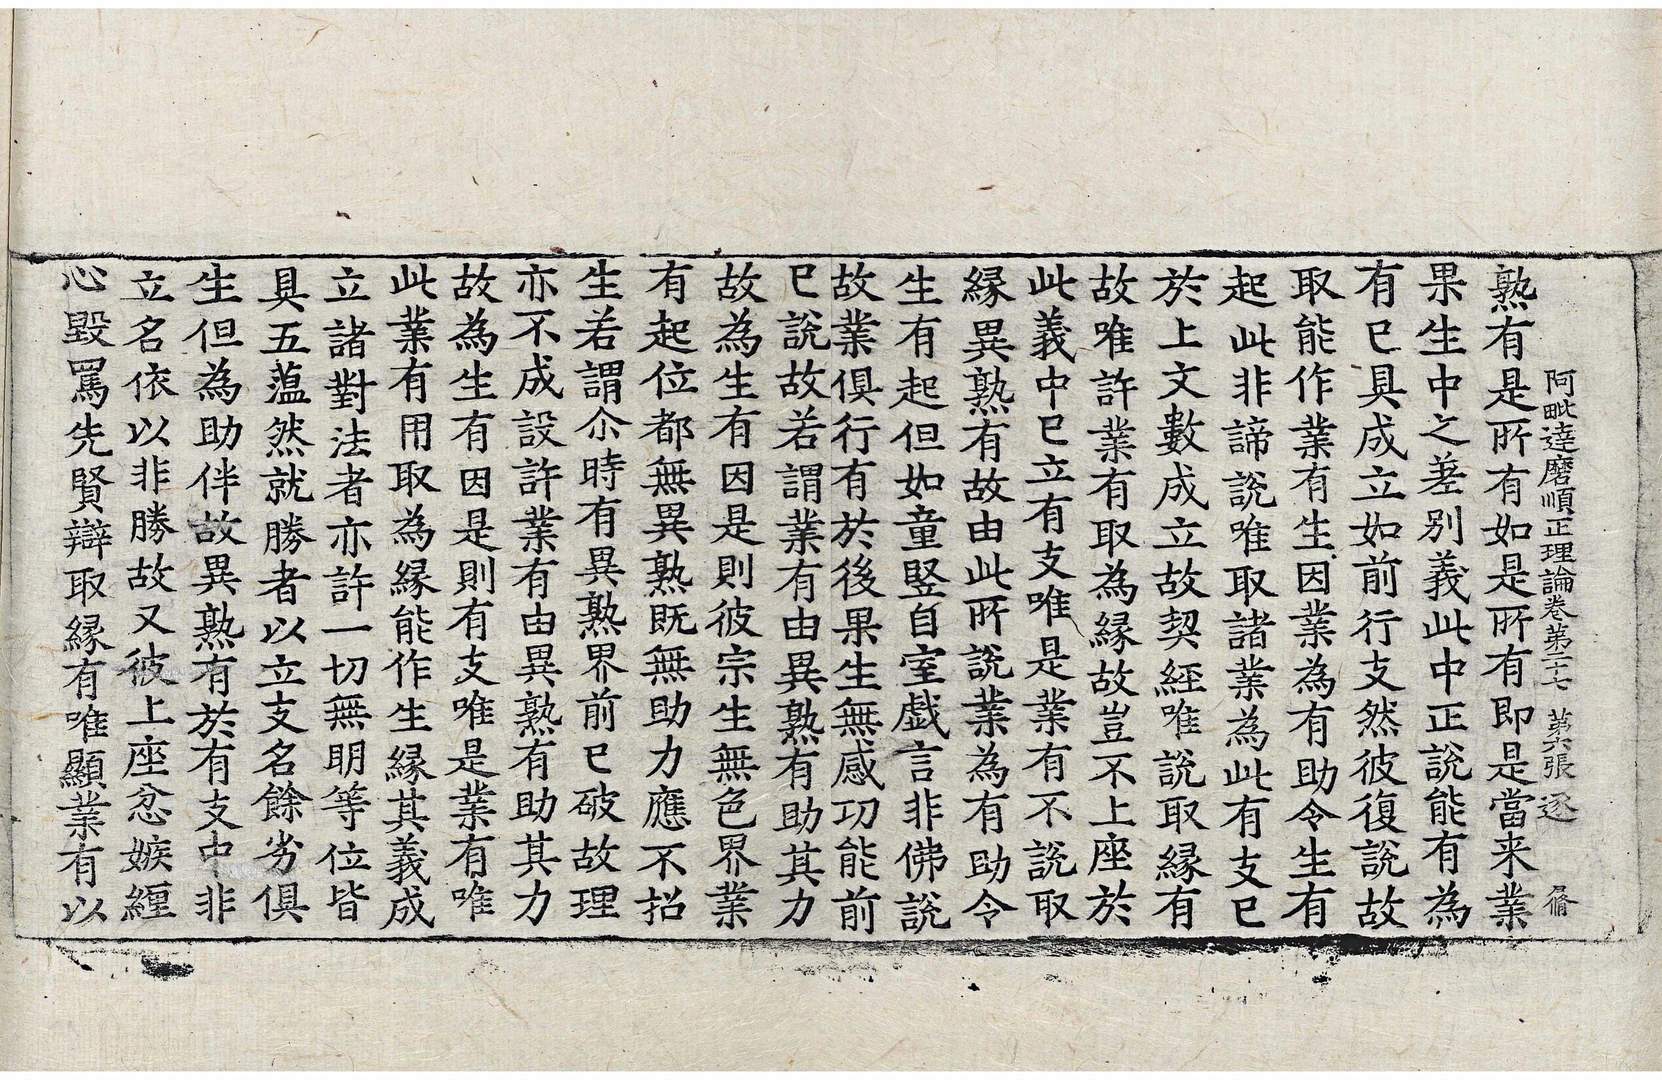 阿毗達磨順正理論卷第二十七 第六張 逐
熟有是所有如是所有即是當来業
果生中之差别義此中正說能有為
有已具成立如前行支然彼復說故
取能作業有生因業為有助令生有
起此非諦說唯取諸業為此有支已
於上文數成立故契經唯說取縁有
故唯許業有取為縁故豈不上座於
此義中已立有支唯是業有不說取
縁異熟有故由此所說業為有助令
生有起但如童竪自室戱言非佛說
故業俱行有於後果生無感功能前
已說故若謂業有由異熟有助其力
故為生有因是則彼宗生無色界業
有起位都無異熟既無助力應不招
生若謂尒時有異熟界前已破故理
亦不成設許業有由異熟有助其力
故為生有因是則有支唯是業有唯
此業有用取為縁能作生縁其義成
立諸對法者亦許一切無明等位皆
具五蕰然就勝者以立支名餘劣俱
生但為助伴故異熟有於有支中非
立名依以非勝故又彼上座忿嫉纒
心毀罵先賢辯取縁有唯顯業有以